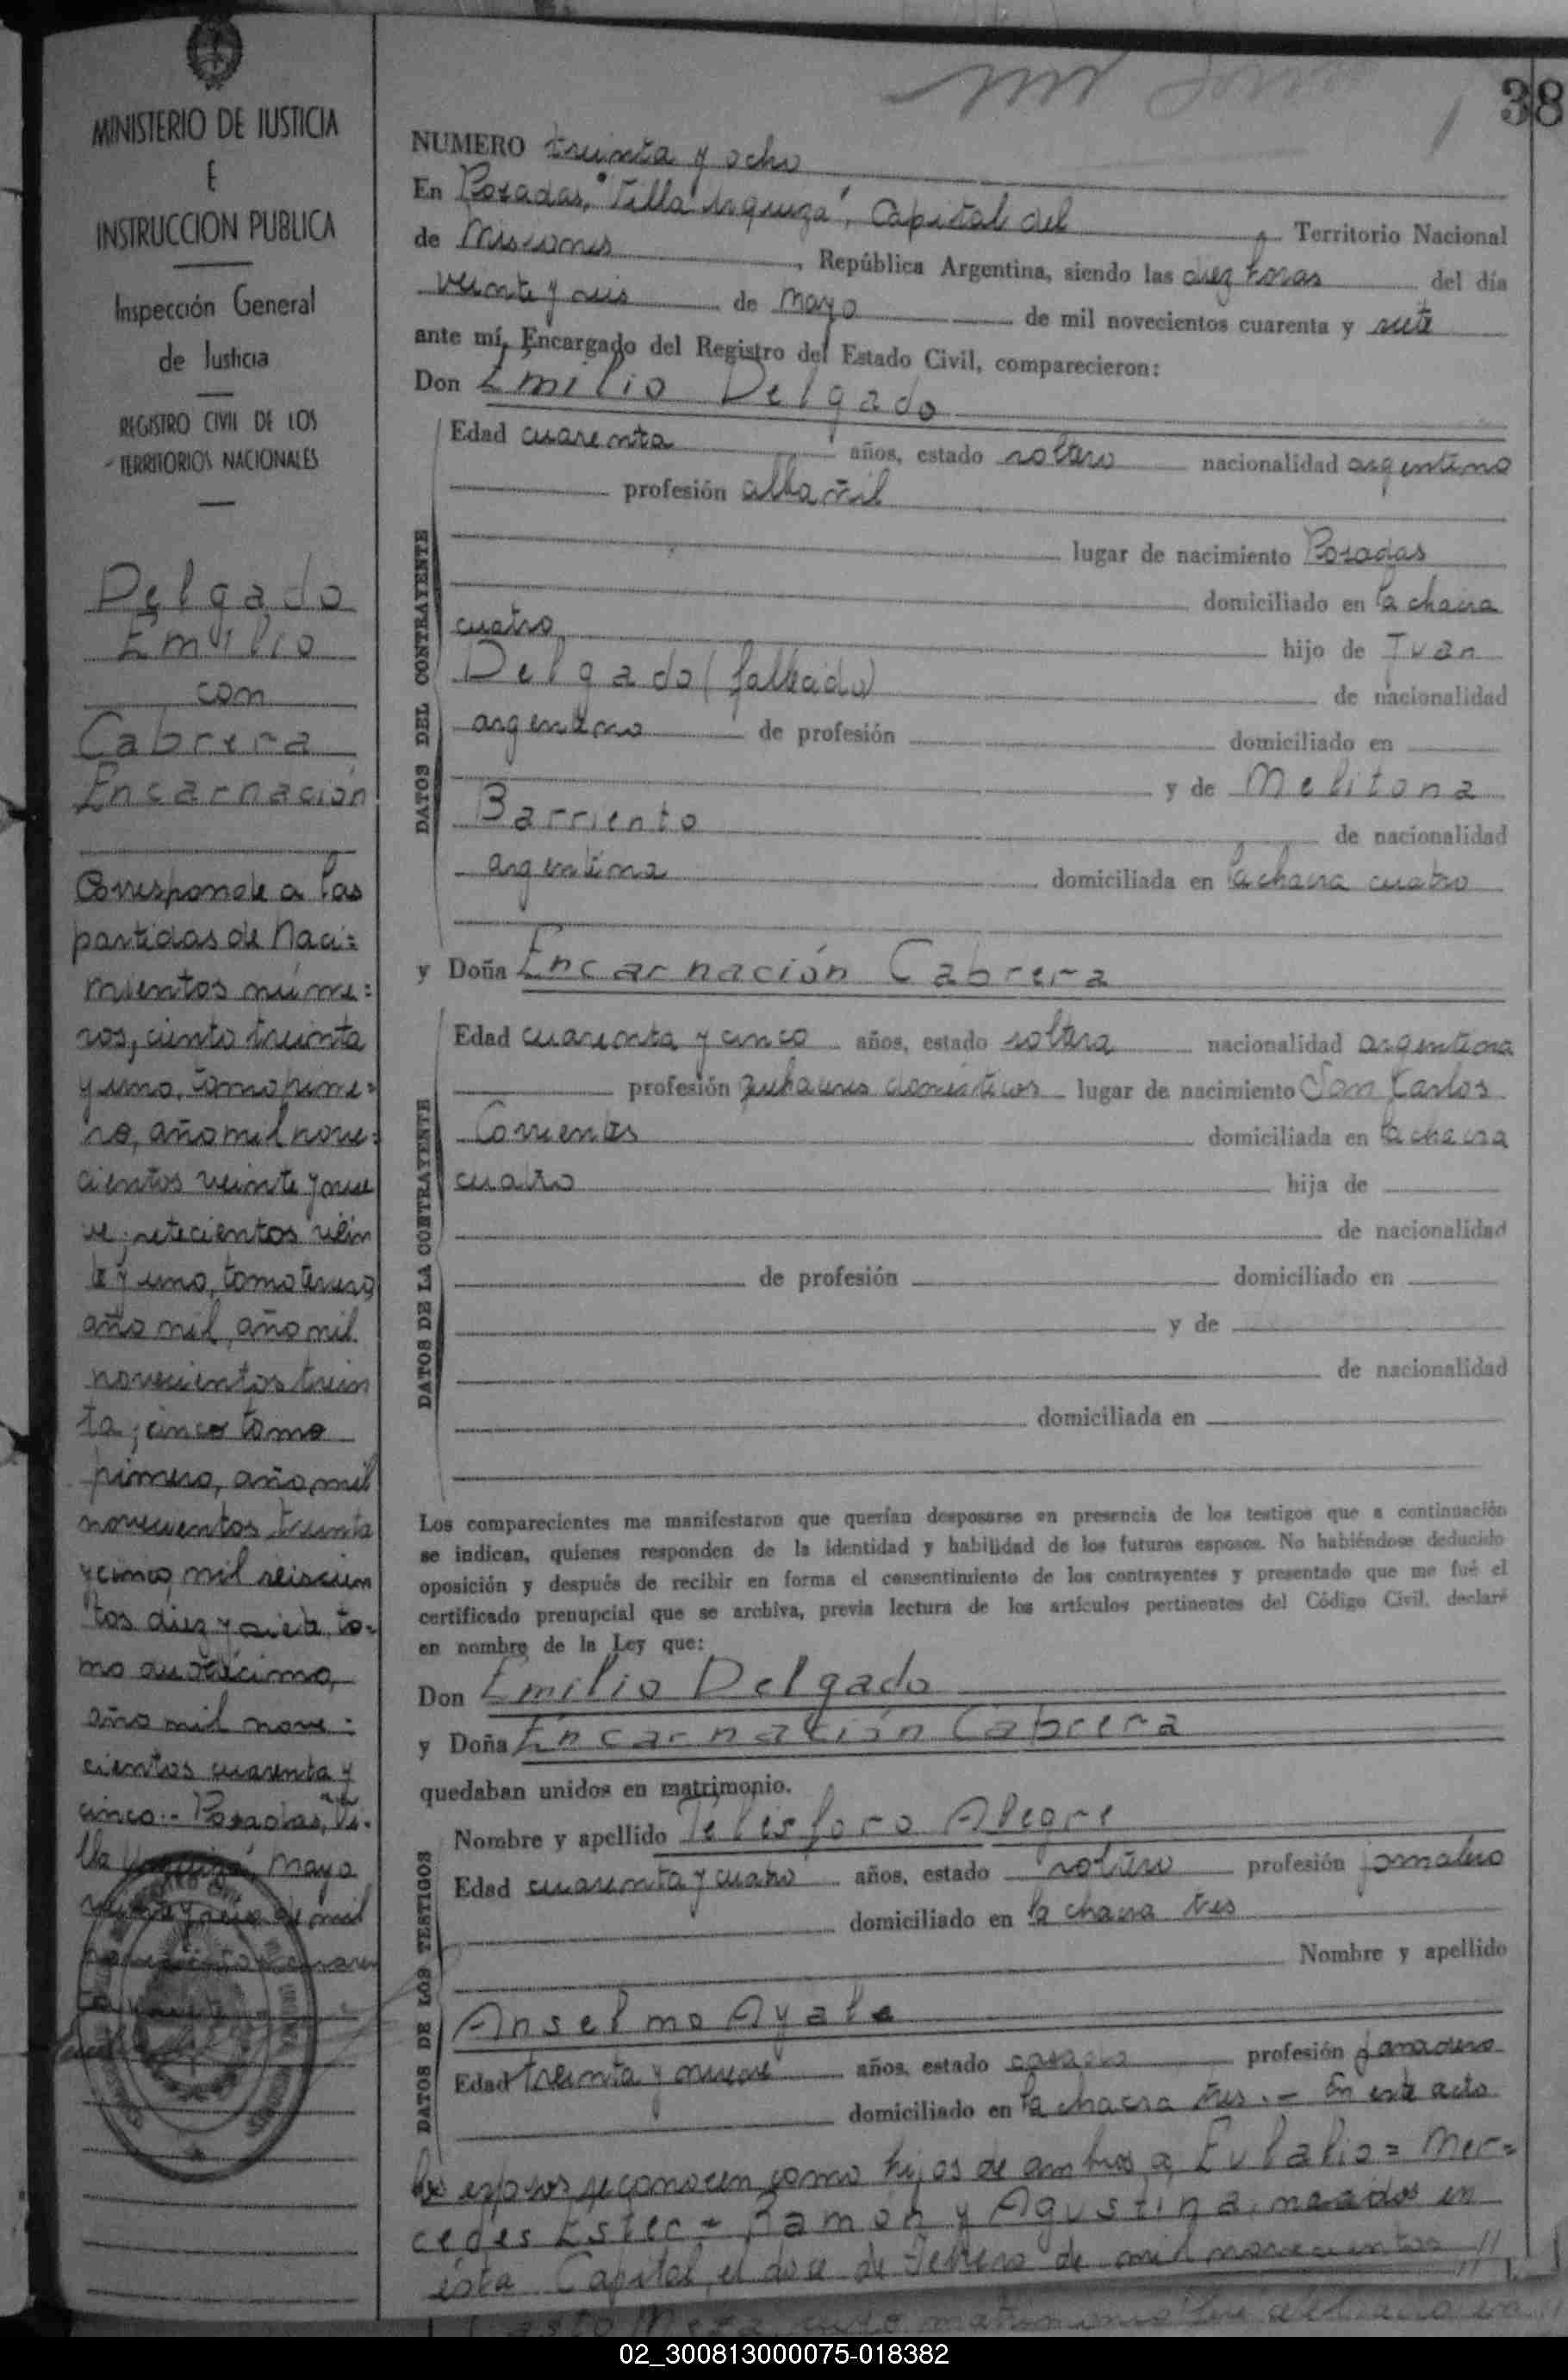 38
MINISTERIO DE JUSTICIA
E
INSTRUCCION PUBLICA
Inspección General
de Justicia
REGISTRO CIVIL DE LOS
TERRITORIOS NACIONALES
Delgado
Emilio
con
Cabrera
Encarnación
Corresponde a las
partidas de Naci=
mientos núme=
ros, ciento treinta
y uno, tomo prime=
ro, año mil nove=
cientos veinte y nue
ve; setecientos vein
te y uno, tomo tercero
año mil, año mil
novecientos trein
ta; cinco tomo
primero, año mil
novecientos treinta
y cinco, mil seiscien
tos diez y siete, to=
mo
año mil nove=
cientos cuarenta y
cinco.- Posadas, "Vi=
lla Urquiza", Mayo
veinte y seis de mil
NUMERO treinta y ocho
En Posadas, "Villa Urquiza", Capital del Territorio Nacional
de Misiones, República Argentina, siendo las diez horas del día
veinte y seis de Mayo de mil novecientos cuarenta y siete
ante mí, Encargado del Registro del Estado Civil, comparecieron:
Don Emilio Delgado
DATOS DEL CONTRAYENTE
Edad cuarenta años, estado soltero nacionalidad argentino
profesión albañil
lugar de nacimiento Posadas
domiciliado en la chacra
cuatro hijo de Juan
Delgado (fallecido) de nacionalidad
argentino de profesión domiciliado en
y de Melitona
Barriento de nacionalidad
argentina domiciliada en la chacra cuatro
y Doña Encarnación Cabrera
DATOS DE LA CONTRAYENTE
Edad cuarenta y cinco años, estado soltera nacionalidad argentina
profesión quehaceres domésticos lugar de nacimiento San Carlos
Corrientes domiciliada en la chacra
cuatro hija de
de nacionalidad
de profesión domiciliado en
y de
de nacionalidad
domiciliada en
Los comparecientes me manifestaron que querían desposarse en presencia de los testigos que a continuación
se indican, quienes responden de la identidad y habilidad de los futuros esposos. No habiéndose deducido
oposición y después de recibir en forma el consentimiento de los contrayentes y presentado que me fué el
certificado prenupcial que se archiva, previa lectura de los artículos pertinentes del Código Civil, declaré
en nombre de la Ley que:
Don Emilio Delgado
y Doña Encarnación Cabrera
quedaban unidos en matrimonio.
DATOS DE LOS TESTIGOS
Nombre y apellido Telesforo Alegre
Edad cuarenta y cuatro años, estado soltero profesión jornalero
domiciliado en la chacra tres
Nombre y apellido
Anselmo Ayala
Edad treinta y nueve años, estado casado profesión panadero
domiciliado en la chacra tres.- En este acto
los esposos reconocen como hijos de ambos a Eulalio= Mer=
cedes Ester= Ramón y Agustina, nacidos en
ésta Capital, el doce de Febrero de mil novecientos //
02_300813000075-018382